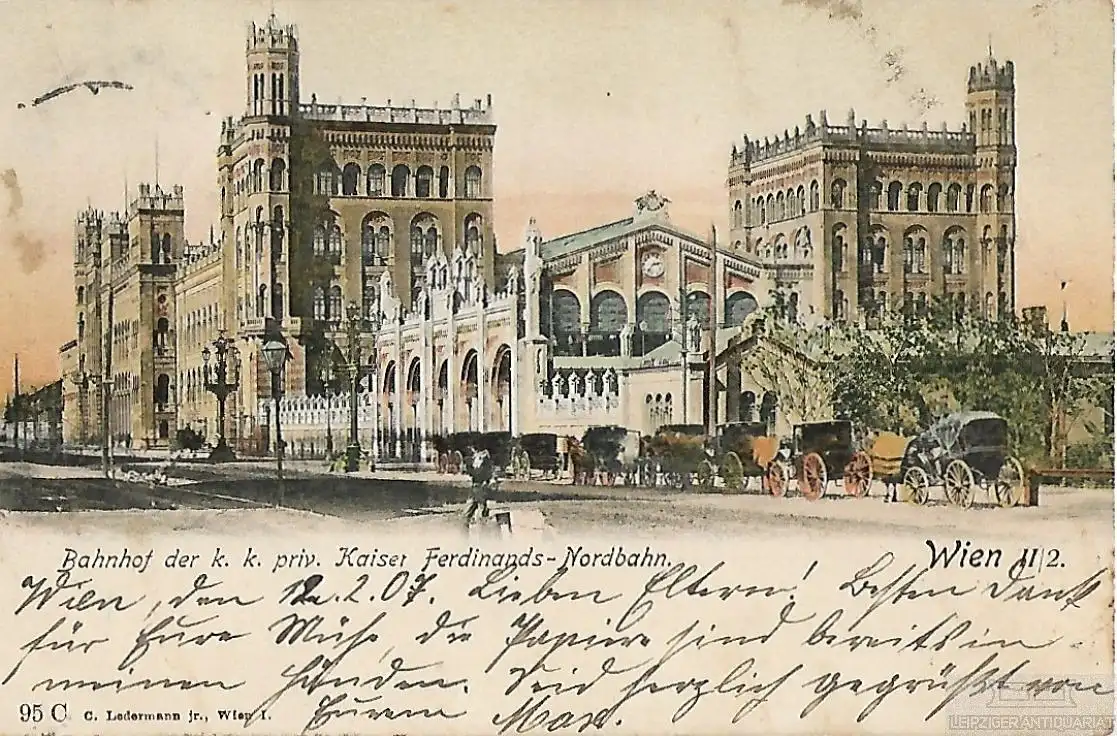 Bahnhof der k. k. priv. Kaiser Ferdinands-Nordbahn.
Wien II/2.
Wien, den 12.2.07. Lieben Eltern! Besten Dank
für Eure Mühe, die Papiere sind bereits in
meinen Händen. Seid herzlich gegrüßt von
Eurem Max.
95 C C. Ledermann jr., Wien I.
LEIPZIGER ANTIQUARIAT